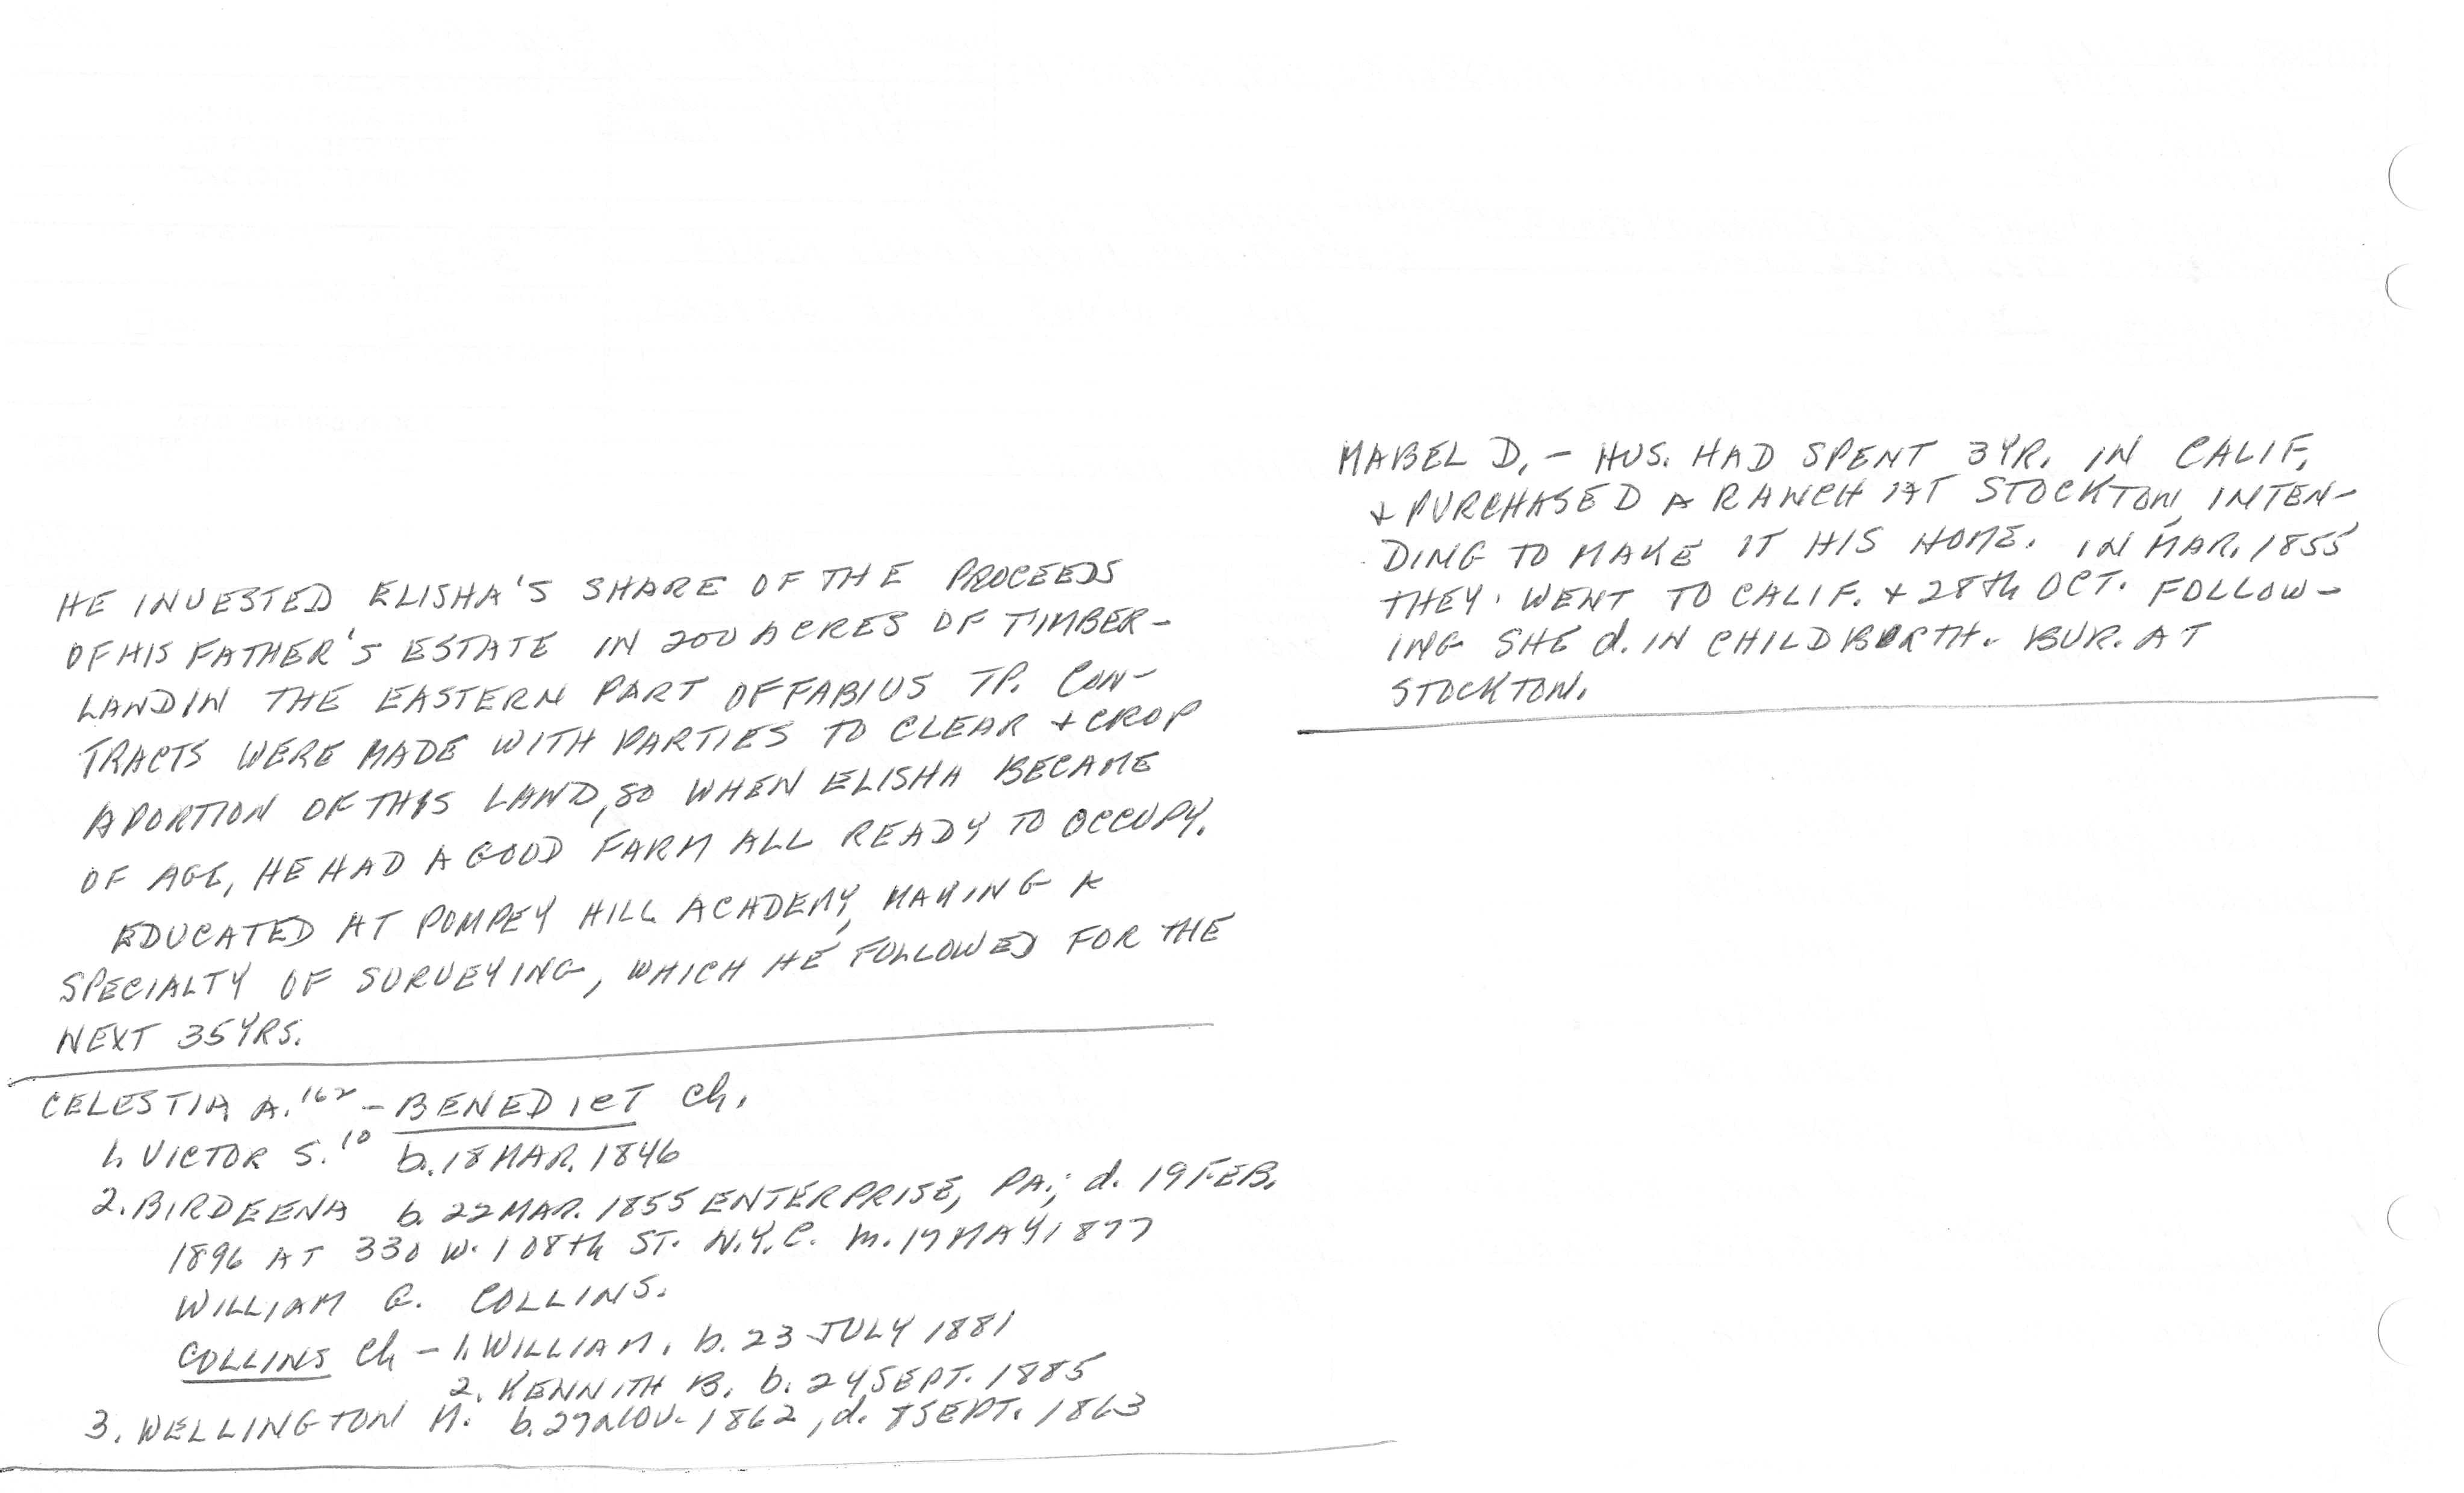 HE INVESTED ELISHA'S SHARE OF THE PROCEEDS
OF HIS FATHER'S ESTATE IN 200 ACRES OF TIMBER-
LAND IN THE EASTERN PART OF FABIUS TP. CON-
TRACTS WERE MADE WITH PARTIES TO CLEAR + CROP
A PORTION OF THIS LAND, SO WHEN ELISHA BECAME
OF AGE, HE HAD A GOOD FARM ALL READY TO OCCUPY.
EDUCATED AT POMPEY HILL ACADEMY, MAKING A
SPECIALTY OF SURVEYING, WHICH HE FOLLOWED FOR THE
NEXT 35 YRS.
CELESTIA A.162 - BENEDICT Ch.
1. VICTOR S.10 b. 18 MAR. 1846
2. BIRDEENA b. 22 MAR. 1855 ENTERPRISE, PA.; d. 19 FEB.
1896 AT 330 W. 108th ST. N.Y.C. m. 17 MAY 1877
WILLIAM G. COLLINS.
COLLINS Ch - 1. WILLIAM. b. 23 JULY 1881
2. KENNITH B. b. 24 SEPT. 1885
3. WELLINGTON M. b. 27 NOV. 1862, d. 8 SEPT. 1863
MABEL D. - HUS. HAD SPENT 3 YR. IN CALIF.
+ PURCHASED A RANCH AT STOCKTON, INTEN-
DING TO MAKE IT HIS HOME. IN MAR. 1855
THEY WENT TO CALIF. + 28th OCT. FOLLOW-
ING SHE d. IN CHILDBIRTH. BUR. AT
STOCKTON.